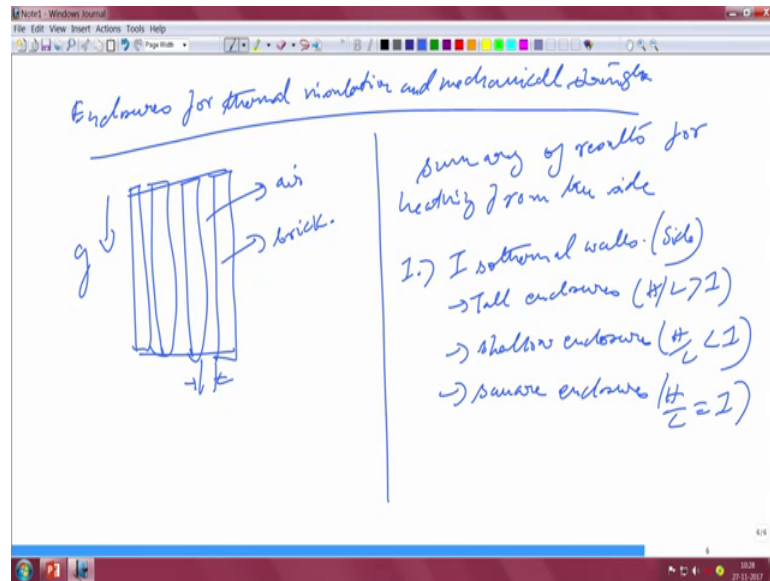 Note1 - Windows Journal
File Edit View Insert Actions Tools Help
Page Width
Enclosures for thermal insulation and mechanical strength
g
air
brick.
t
summary of results for
heating from the side
1.) Isothermal walls. (Side)
→ Tall enclosures (H/L > 1)
→ shallow enclosure (H/L < 1)
→ square enclosures (H/L = 1)
6/6
6
10:28
27-11-2017